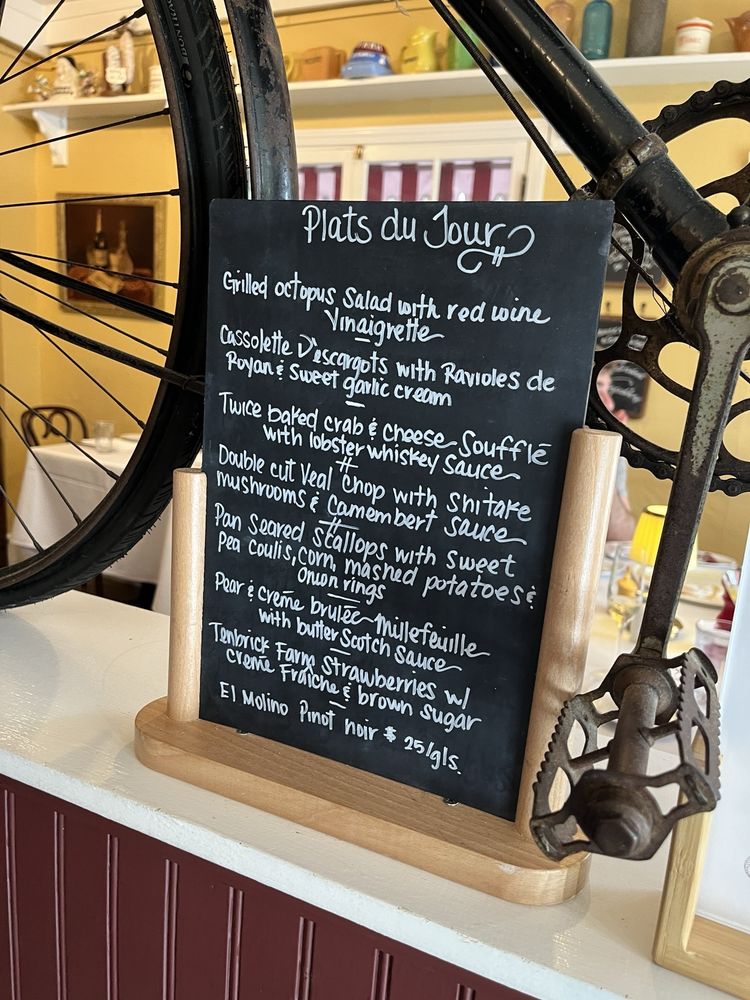 Plats du Jour
Grilled octopus Salad with red wine
Vinaigrette
Cassolette D'escargots with Ravioles de
Royan & Sweet garlic cream
Twice baked crab & cheese Soufflé
with lobster whiskey Sauce
Double cut Veal Chop with Shitake
mushrooms & Camembert sauce
Pan Seared Scallops with Sweet
pea coulis, corn, mashed potatoes &
Onion rings
Pear & crème brulée Millefeuille
with butter Scotch Sauce
Tenbrick Farm Strawberries w/
crème Fraîche & brown sugar
El Molino Pinot noir $ 25/gls.